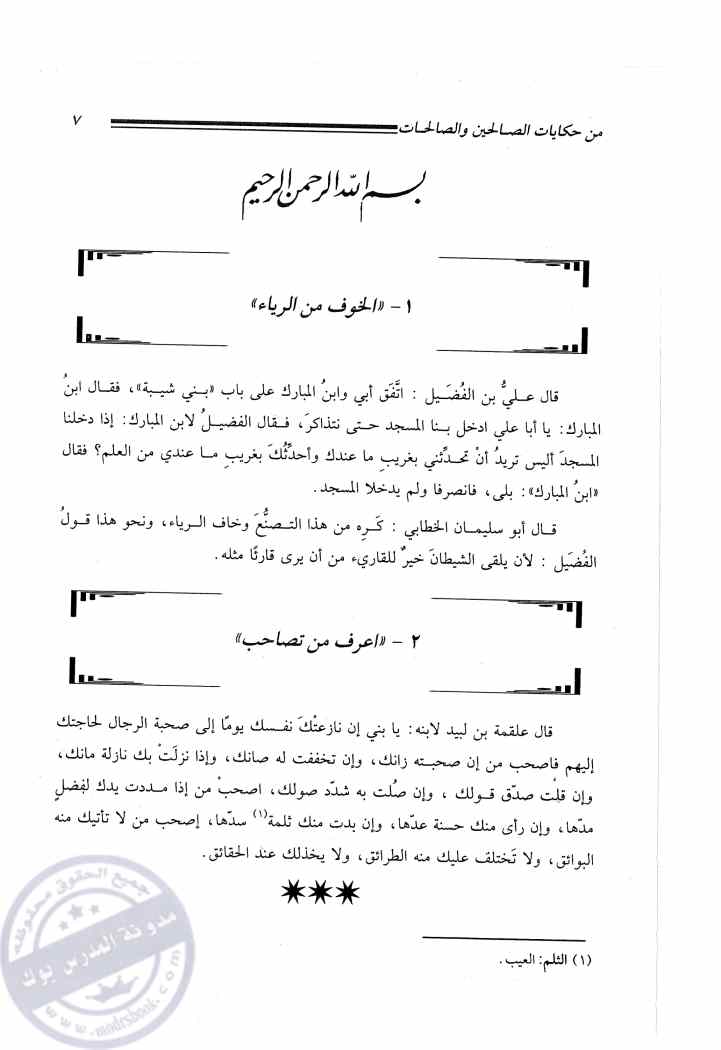 من حكايات الصالحين والصالحات ٧
بسم الله الرحمن الرحيم
١ - «الخوف من الرياء»
قال عليُّ بن الفُضَيل : اتَّفَق أبي وابنُ المبارك على باب «بني شيبة»، فقال ابنُ
المبارك: يا أبا علي ادخل بنا المسجد حتى نتذاكرَ، فقال الفضيلُ لابن المبارك: إذا دخلنا
المسجدَ أليس تريدُ أنْ تحدِّثني بغريبِ ما عندك وأحدِّثُكَ بغريبِ ما عندي من العلم؟ فقال
«ابنُ المبارك»: بلى، فانصرفا ولم يدخلا المسجد.
قال أبو سليمان الخطابي : كَرِه من هذا التصنُّعَ وخاف الرياء، ونحو هذا قولُ
الفُضَيل : لأن يلقى الشيطانَ خيرٌ للقاريء من أن يرى قارئًا مثله.
٢ - «اعرف من تصاحب»
قال علقمة بن لبيد لابنه: يا بني إن نازعتْكَ نفسك يومًا إلى صحبة الرجال لحاجتك
إليهم فاصحب من إن صحبته زانك، وإن تخففت له صانك، وإذا نزلَتْ بك نازلة مانك،
وإن قلْت صدّق قولك ، وإن صُلت به شدّد صولك، اصحبْ من إذا مددت يدك لفضلٍ
مدّها، وإن رأى منك حسنة عدّها، وإن بدت منك ثلمة(١) سدّها، إصحب من لا تأتيك منه
البوائق، ولا تَختلف عليك منه الطرائق، ولا يخذلك عند الحقائق.
(١) الثلم: العيب.
جميع الحقوق محفوظة
مدونة المدرس بوك
www.modrsbook.com